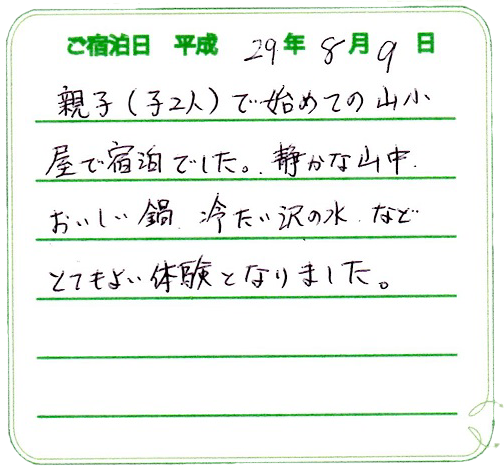 ご宿泊日 平成 29年 8月 9日
親子(子2人)で始めての山小
屋で宿泊でした。静かな山中、
おいしい鍋、冷たい沢の水、など
とてもよい体験となりました。